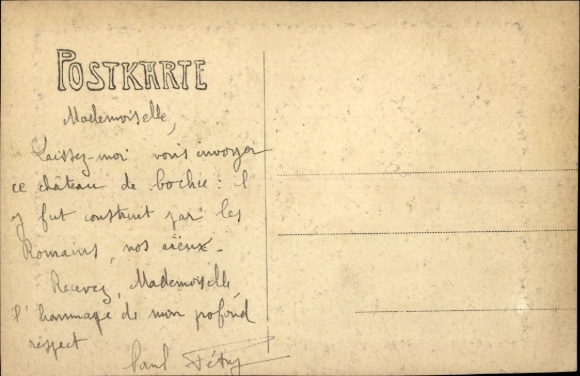 POSTKARTE
Mademoiselle,
Laissez-moi vous envoyer
ce château de bochie : il
y fut construit par les
Romains, nos aïeux.
Recevez, Mademoiselle,
l'hommage de mon profond
respect
Paul